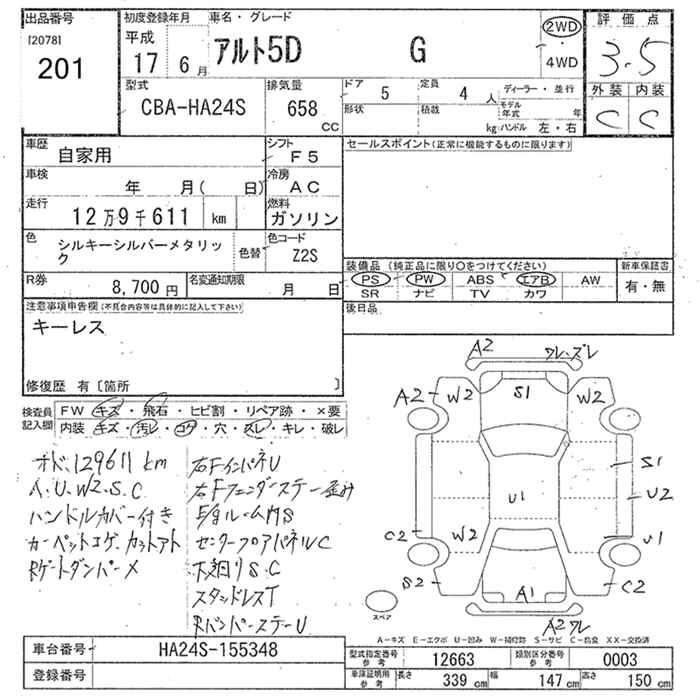 出品番号
[2078]
201
初度登録年月
平成
17 6月
車名・グレード
アルト5D G
2WD
4WD
評価点
3.5
外装 内装
C C
型式
CBA-HA24S
排気量
658
CC
ドア 5
形状
定員 4 人
積載 kg
ディーラー・並行
モデル年式 年
ハンドル 左・右
車歴
自家用
シフト
F5
車検
年 月( 日)
冷房
AC
走行
12万9千611 km
燃料
ガソリン
色
シルキーシルバーメタリック
色替
色コード
Z2S
R券
8,700円
名変通知期限
月 日
セールスポイント(正常に機能するものに限ります)
装備品 (純正品に限り○をつけてください)
PS PW ABS エアB AW
SR ナビ TV カワ
新車保証書
有・無
後日品
注意事項申告欄(不具合内容等は具体的に記入して下さい)
キーレス
修復歴 有〔箇所 〕
検査員記入欄
FW キズ・飛石・ヒビ割・リペア跡・×要
内装 キズ・汚レ・コゲ・穴・スレ・キレ・破レ
オド、129611km
A.U.W2.S.C
ハンドルカバー付き
カーペットコゲ、カットアト
Rゲートダンパー×
右FインパネU
右Fフェンダーステー歪み
センターフロアパネルC
下廻りS.C
スタッドレスT
RバンパーステーU
A2
ワレ・ズレ
A2 W2 S1 W2
S1
U2
U1
U1
C2
W2
S2
A1
C2
A2ワレ
スペア
A-キズ E-エクボ U-凹み W-補修跡 S-サビ C-腐食 XX-交換済
車台番号
HA24S-155348
登録番号
型式指定番号
参考
12663
類別区分番号
参考
0003
車庫証明用
参考
長さ 339 cm
幅 147 cm
高さ 150 cm